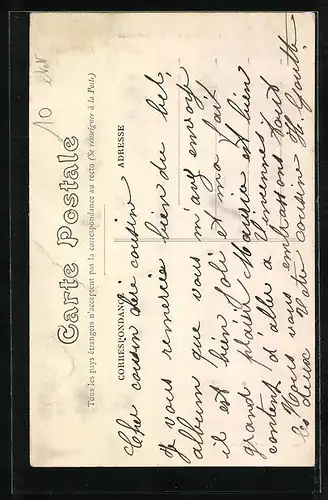 10
Carte Postale
Tous les pays étrangers n'acceptent pas la correspondance au recto (Se renseigner à la Poste.)
CORRESPONDANCE
ADRESSE
Cher cousin chère cousine
Je vous remercie bien du bel
album que vous m'avez envoyé
il est bien joli et m'a fait
grand plaisir Maria est bien
contente d'aller à Vincennes
Nous vous embrassons tout
les deux Votre cousine H.